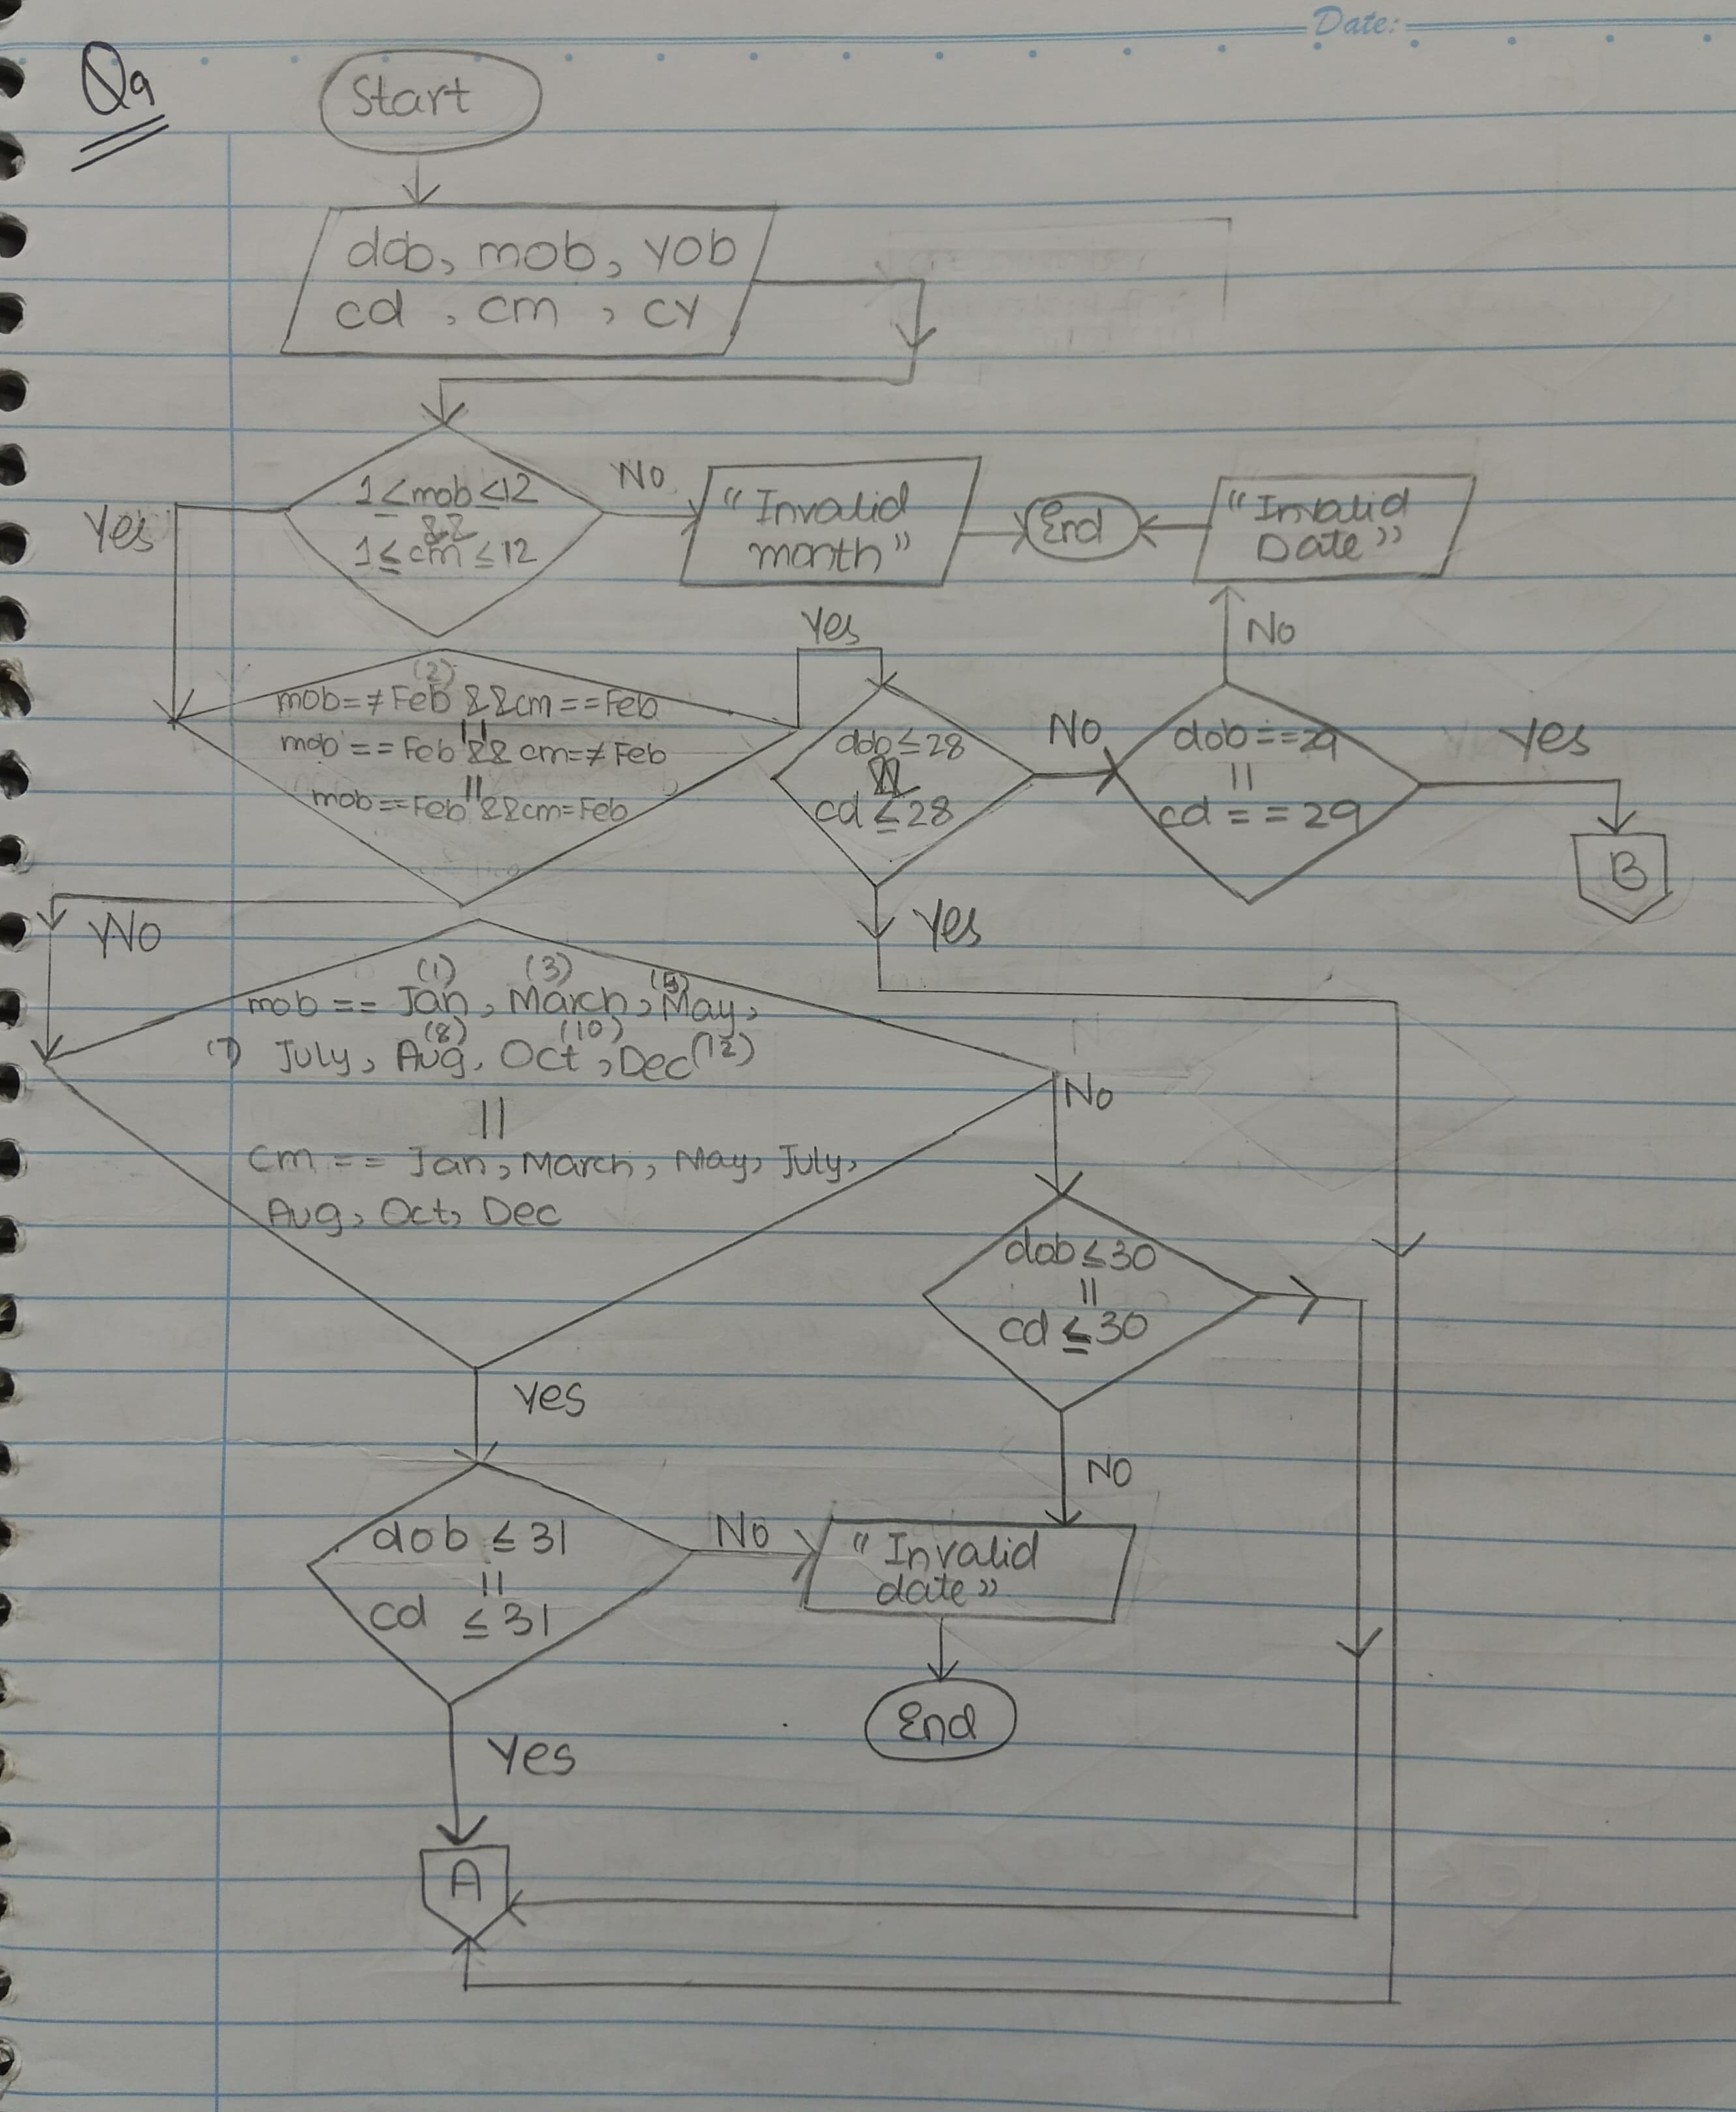 Date:
Q9
Start
dob, mob, yob
cd , cm , cy
1≤mob≤12
&&
1≤cm≤12
Yes
No
"Invalid
month"
End
"Invalid
Date"
No
(2)
mob=≠Feb &&cm==Feb
||
mob==Feb && cm=≠Feb
||
mob==Feb &&cm=Feb
Yes
dob≤28
&&
cd≤28
No
dob==29
||
cd==29
Yes
B
No
Yes
(1) (3) (5)
mob == Jan, March, May,
(8) (10)
(7) July, Aug, Oct, Dec(12)
||
cm == Jan, March, May, July,
Aug, Oct, Dec
No
dob≤30
||
cd≤30
Yes
No
dob ≤31
||
cd ≤31
No
"Invalid
date"
End
Yes
A